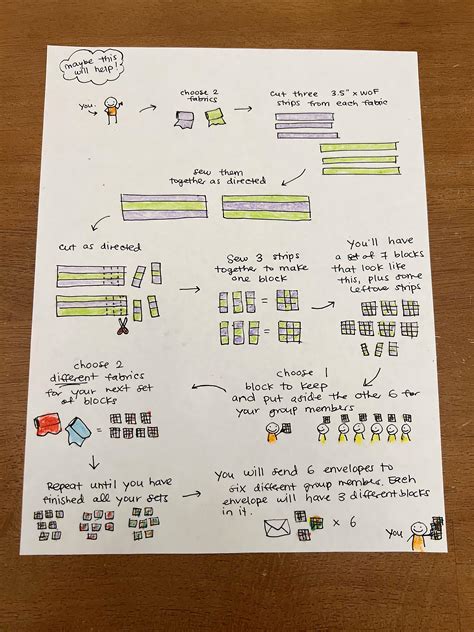 maybe this
will help!
You.
choose 2
fabrics
cut three 3.5" x WOF
strips from each fabric
sew them
together as directed
cut as directed
Sew 3 strips
together to make
one block
You'll have
a set of 7 blocks
that look like
this, plus some
leftover strips
choose 1
block to keep
and put aside the other 6 for
your group members
choose 2
different fabrics
for your next set
of blocks
Repeat until you have
finished all your sets
You will send 6 envelopes to
six different group members. Each
envelope will have 3 different blocks
in it.
x 6
You